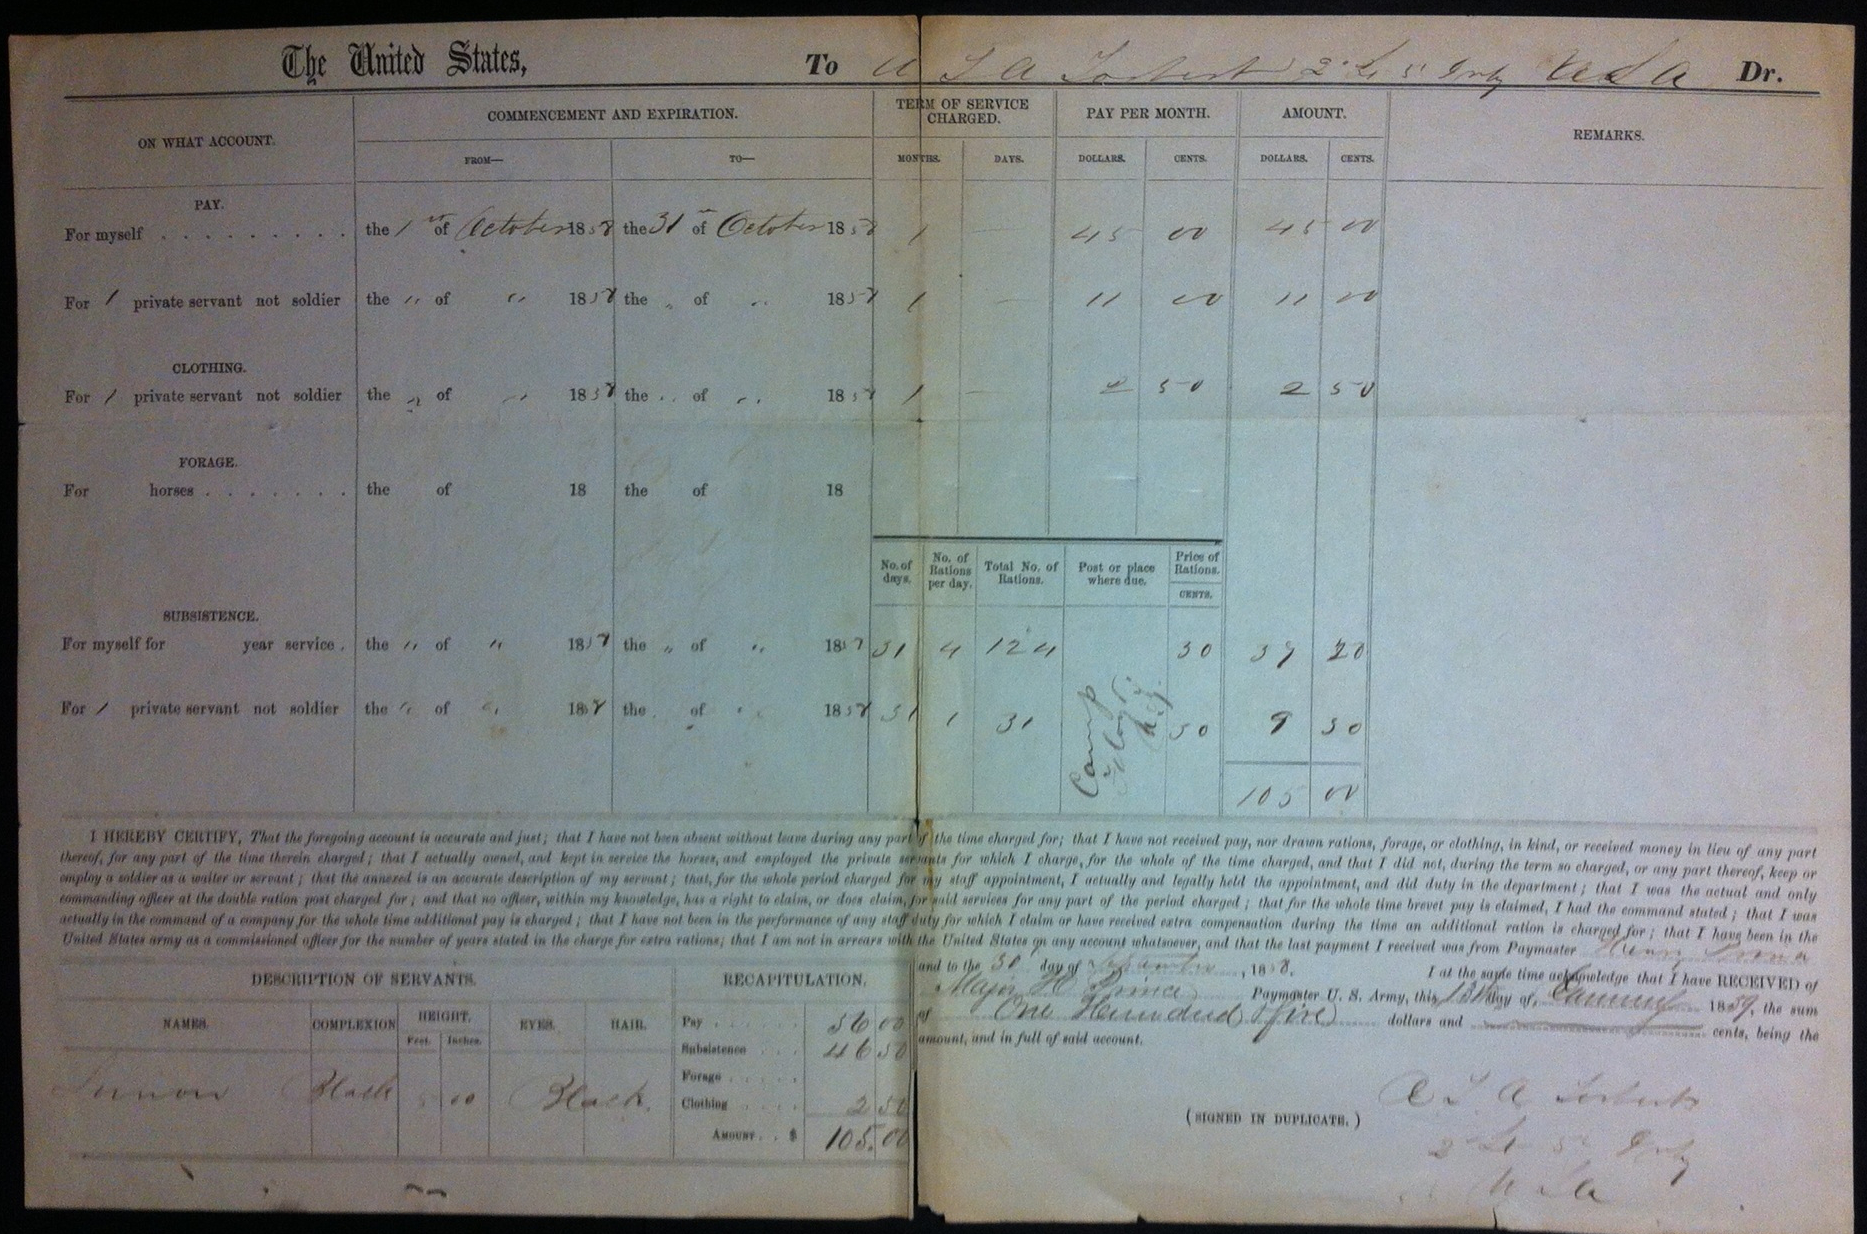 The United States, To A T A Torbert 2' Lt 5' Infty U S A Dr.
ON WHAT ACCOUNT. COMMENCEMENT AND EXPIRATION. TERM OF SERVICE CHARGED. PAY PER MONTH. AMOUNT. REMARKS.
FROM— TO— MONTHS. DAYS. DOLLARS. CENTS. DOLLARS. CENTS.
PAY.
For myself . . . . . . . . . the 1st of October 1858 the 31st of October 1858 1 — 45 00 45 00
For 1 private servant not soldier the " of " 1858 the " of " 1858 1 — 11 00 11 00
CLOTHING.
For 1 private servant not soldier the " of " 1858 the " of " 1858 1 — 2 50 2 50
FORAGE.
For horses . . . . . . . the of 18 the of 18
No. of days. No. of Rations per day. Total No. of Rations. Post or place where due. Price of Rations. CENTS.
SUBSISTENCE.
For myself for year service . the " of " 1858 the " of " 1858 31 4 124 30 37 20
For 1 private servant not soldier the " of " 1858 the of " 1858 31 1 31 Camp 30 9 30
105 00
I HEREBY CERTIFY, That the foregoing account is accurate and just; that I have not been absent without leave during any part of the time charged for; that I have not received pay, nor drawn rations, forage, or clothing, in kind, or received money in lieu of any part
thereof, for any part of the time therein charged; that I actually owned, and kept in service the horses, and employed the private servants for which I charge, for the whole of the time charged, and that I did not, during the term so charged, or any part thereof, keep or
employ a soldier as a waiter or servant; that the annexed is an accurate description of my servant; that, for the whole period charged for my staff appointment, I actually and legally held the appointment, and did duty in the department; that I was the actual and only
commanding officer at the double ration post charged for; and that no officer, within my knowledge, has a right to claim, or does claim, for said services for any part of the period charged; that for the whole time brevet pay is claimed, I had the command stated; that I was
actually in the command of a company for the whole time additional pay is charged; that I have not been in the performance of any staff duty for which I claim or have received extra compensation during the time an additional ration is charged for; that I have been in the
United States army as a commissioned officer for the number of years stated in the charge for extra rations; that I am not in arrears with the United States on any account whatsoever, and that the last payment I received was from Paymaster Henry Prince
and to the 30 day of September, 1858. I at the same time acknowledge that I have RECEIVED of
Major H Prince Paymaster U. S. Army, this 13th day of January 1859, the sum
of One Hundred & five dollars and cents, being the
amount, and in full of said account.
DESCRIPTION OF SERVANTS.
NAMES. COMPLEXION HEIGHT. EYES. HAIR.
Feet. Inches.
Black 5 00 Black.
RECAPITULATION.
Pay . . . . . . 56 00
Subsistence . . . 46 50
Forage . . . . .
Clothing . . . . 2 50
AMOUNT . . $ 105.00
(SIGNED IN DUPLICATE.)
A T A Torbert
2' Lt 5' Infty
U S A